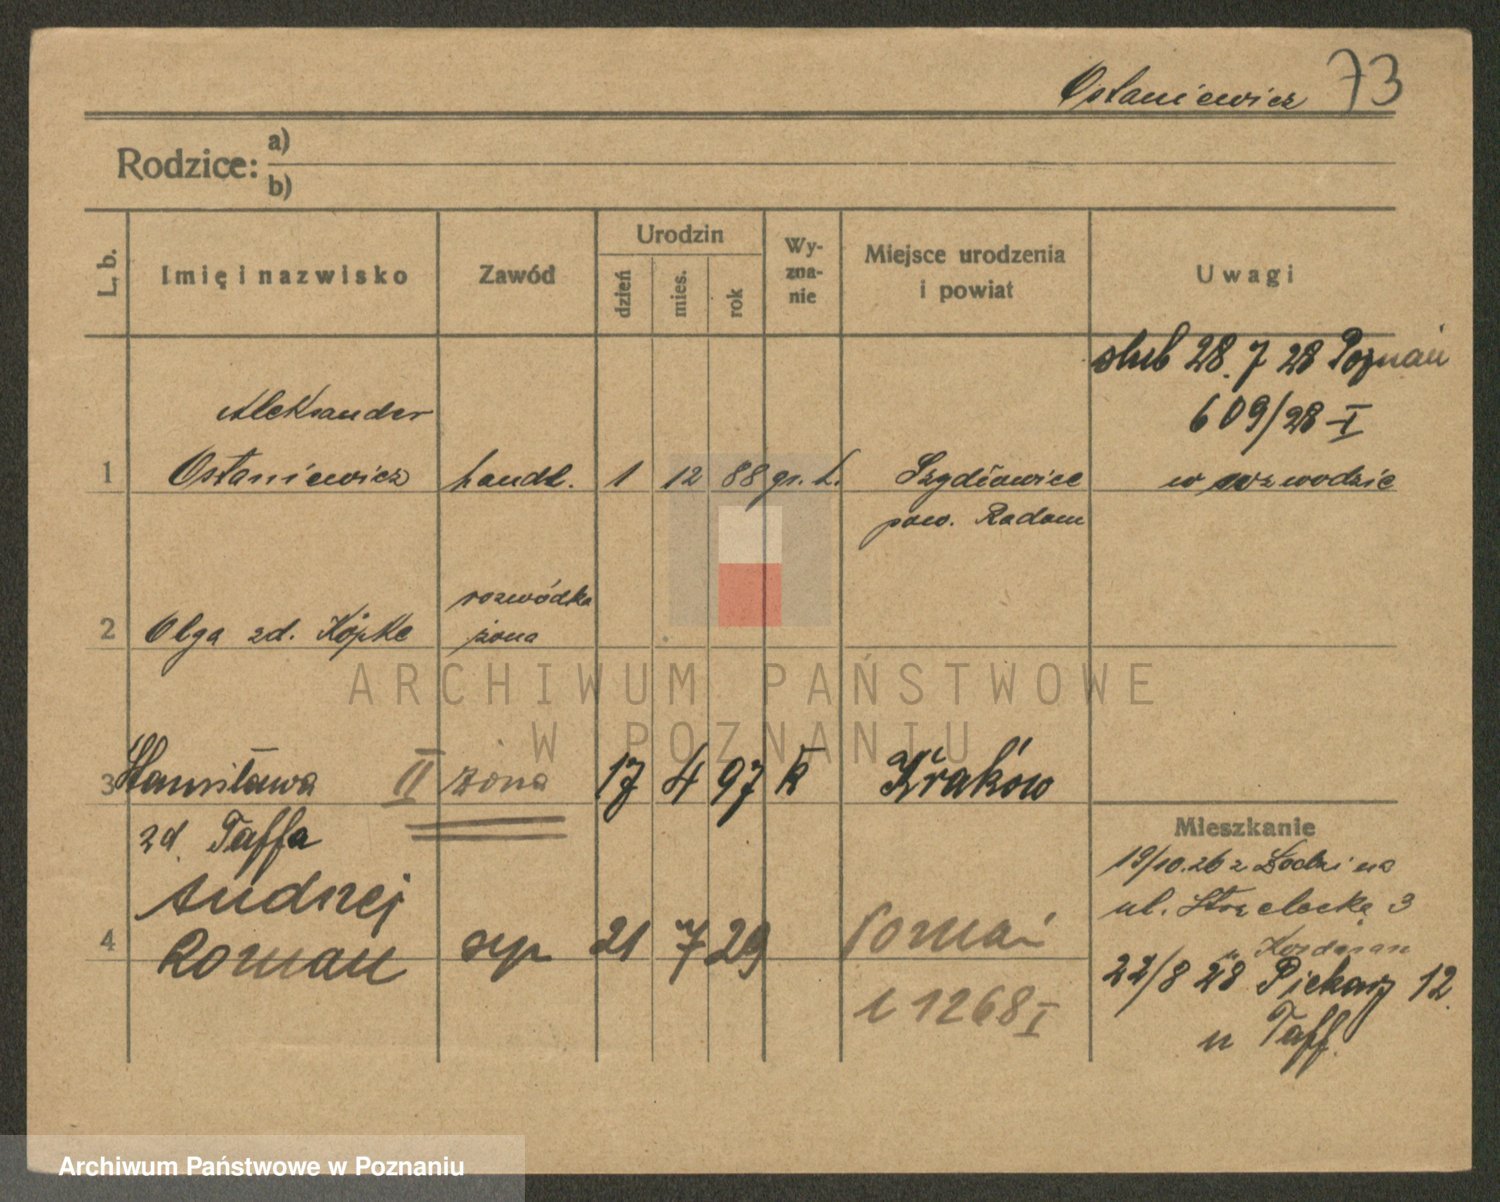 Ostaniewicz 73
Rodzice: a)
b)
L. b. Imię i nazwisko Zawód Urodzin dzień mies. rok Wyznanie Miejsce urodzenia i powiat Uwagi
ślub 28. 7 28 Poznań
609/28 I
Aleksander
1 Ostaniewicz handl. 1 12 88 gr. k. Szydłowiec w rozwodzie
pow. Radom
rozwódka
2 Olga zd. Köpke żona
3 Stanisława II żona 17 4 97 k Kraków
zd. Taffa
Mieszkanie
19/10.26 z Łodzi na
ul. Strzelecką 3
Andrzej
4 Roman syn 21 7 29 Poznań
22/8 28 Piekary 12
1268 I
u Taff.
ARCHIWUM PAŃSTWOWE
W POZNANIU
Archiwum Państwowe w Poznaniu